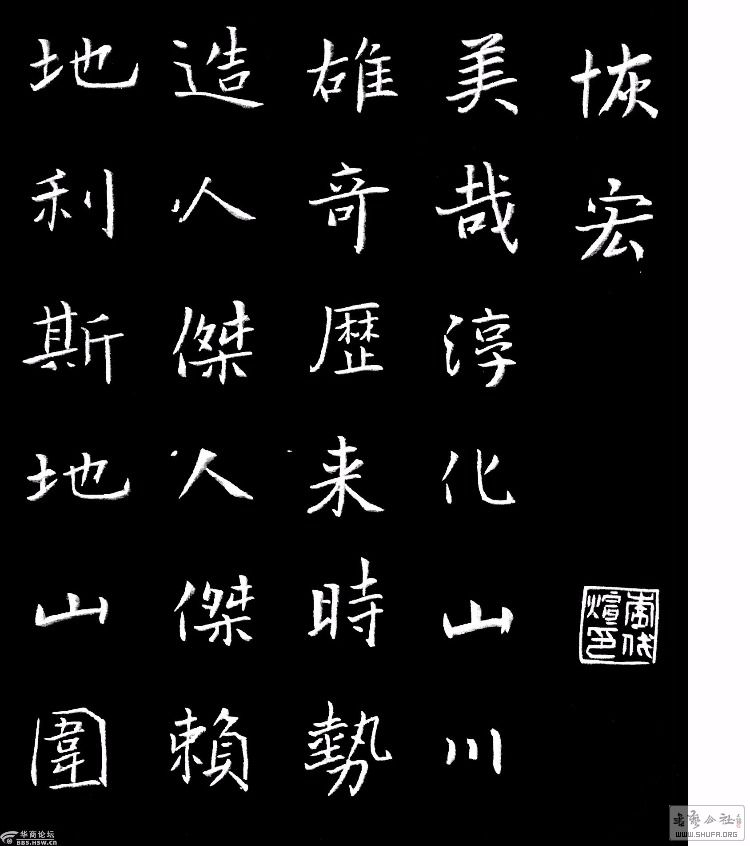 恢宏
美哉淳化山川
雄奇歴来時勢
造人傑人傑賴
地利斯地山圍
华商论坛
BBS.HSW.CN
书艺公社
WWW.SHUFA.ORG